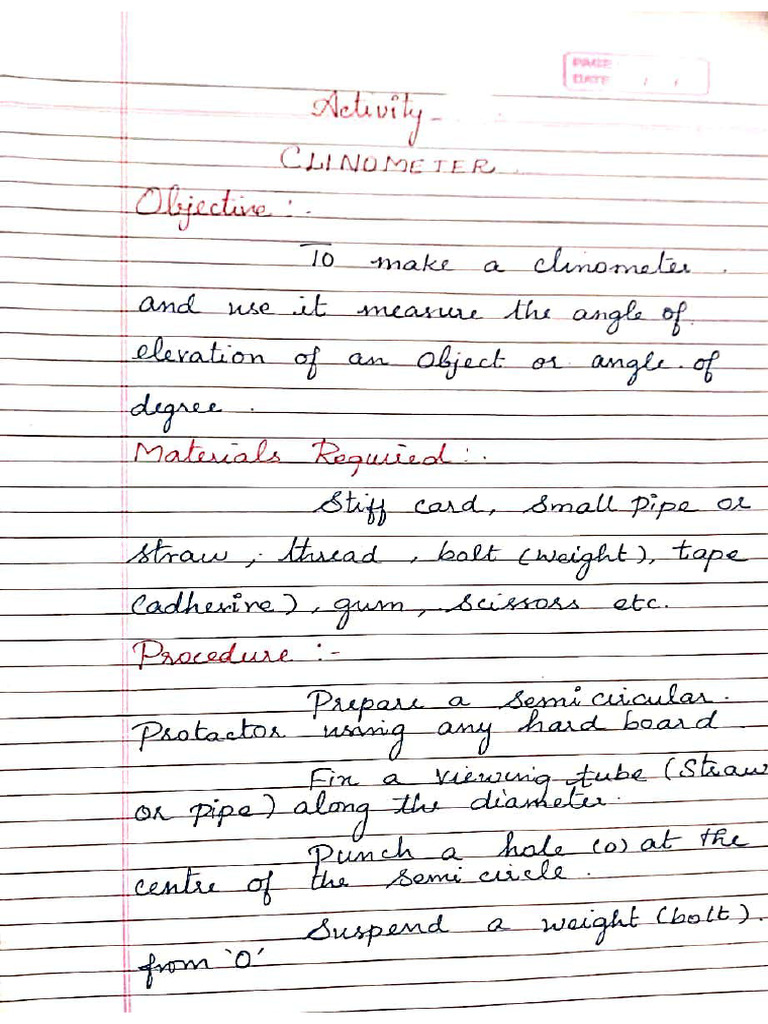 PAGE
DATE / /
Activity-
CLINOMETER.
Objective:-
To make a clinometer.
and use it measure the angle of
elevation of an object or angle of
degree.
Materials Required:-
Stiff card, small pipe or
straw, thread, bolt (weight), tape
(adhesive), gum, scissors etc.
Procedure:-
Prepare a semi circular.
Protactor using any hard board
Fix a viewing tube (Straw
or pipe) along the diameter.
Punch a hole (o) at the
centre of the semi circle.
Suspend a weight (bolt).
from 'O'